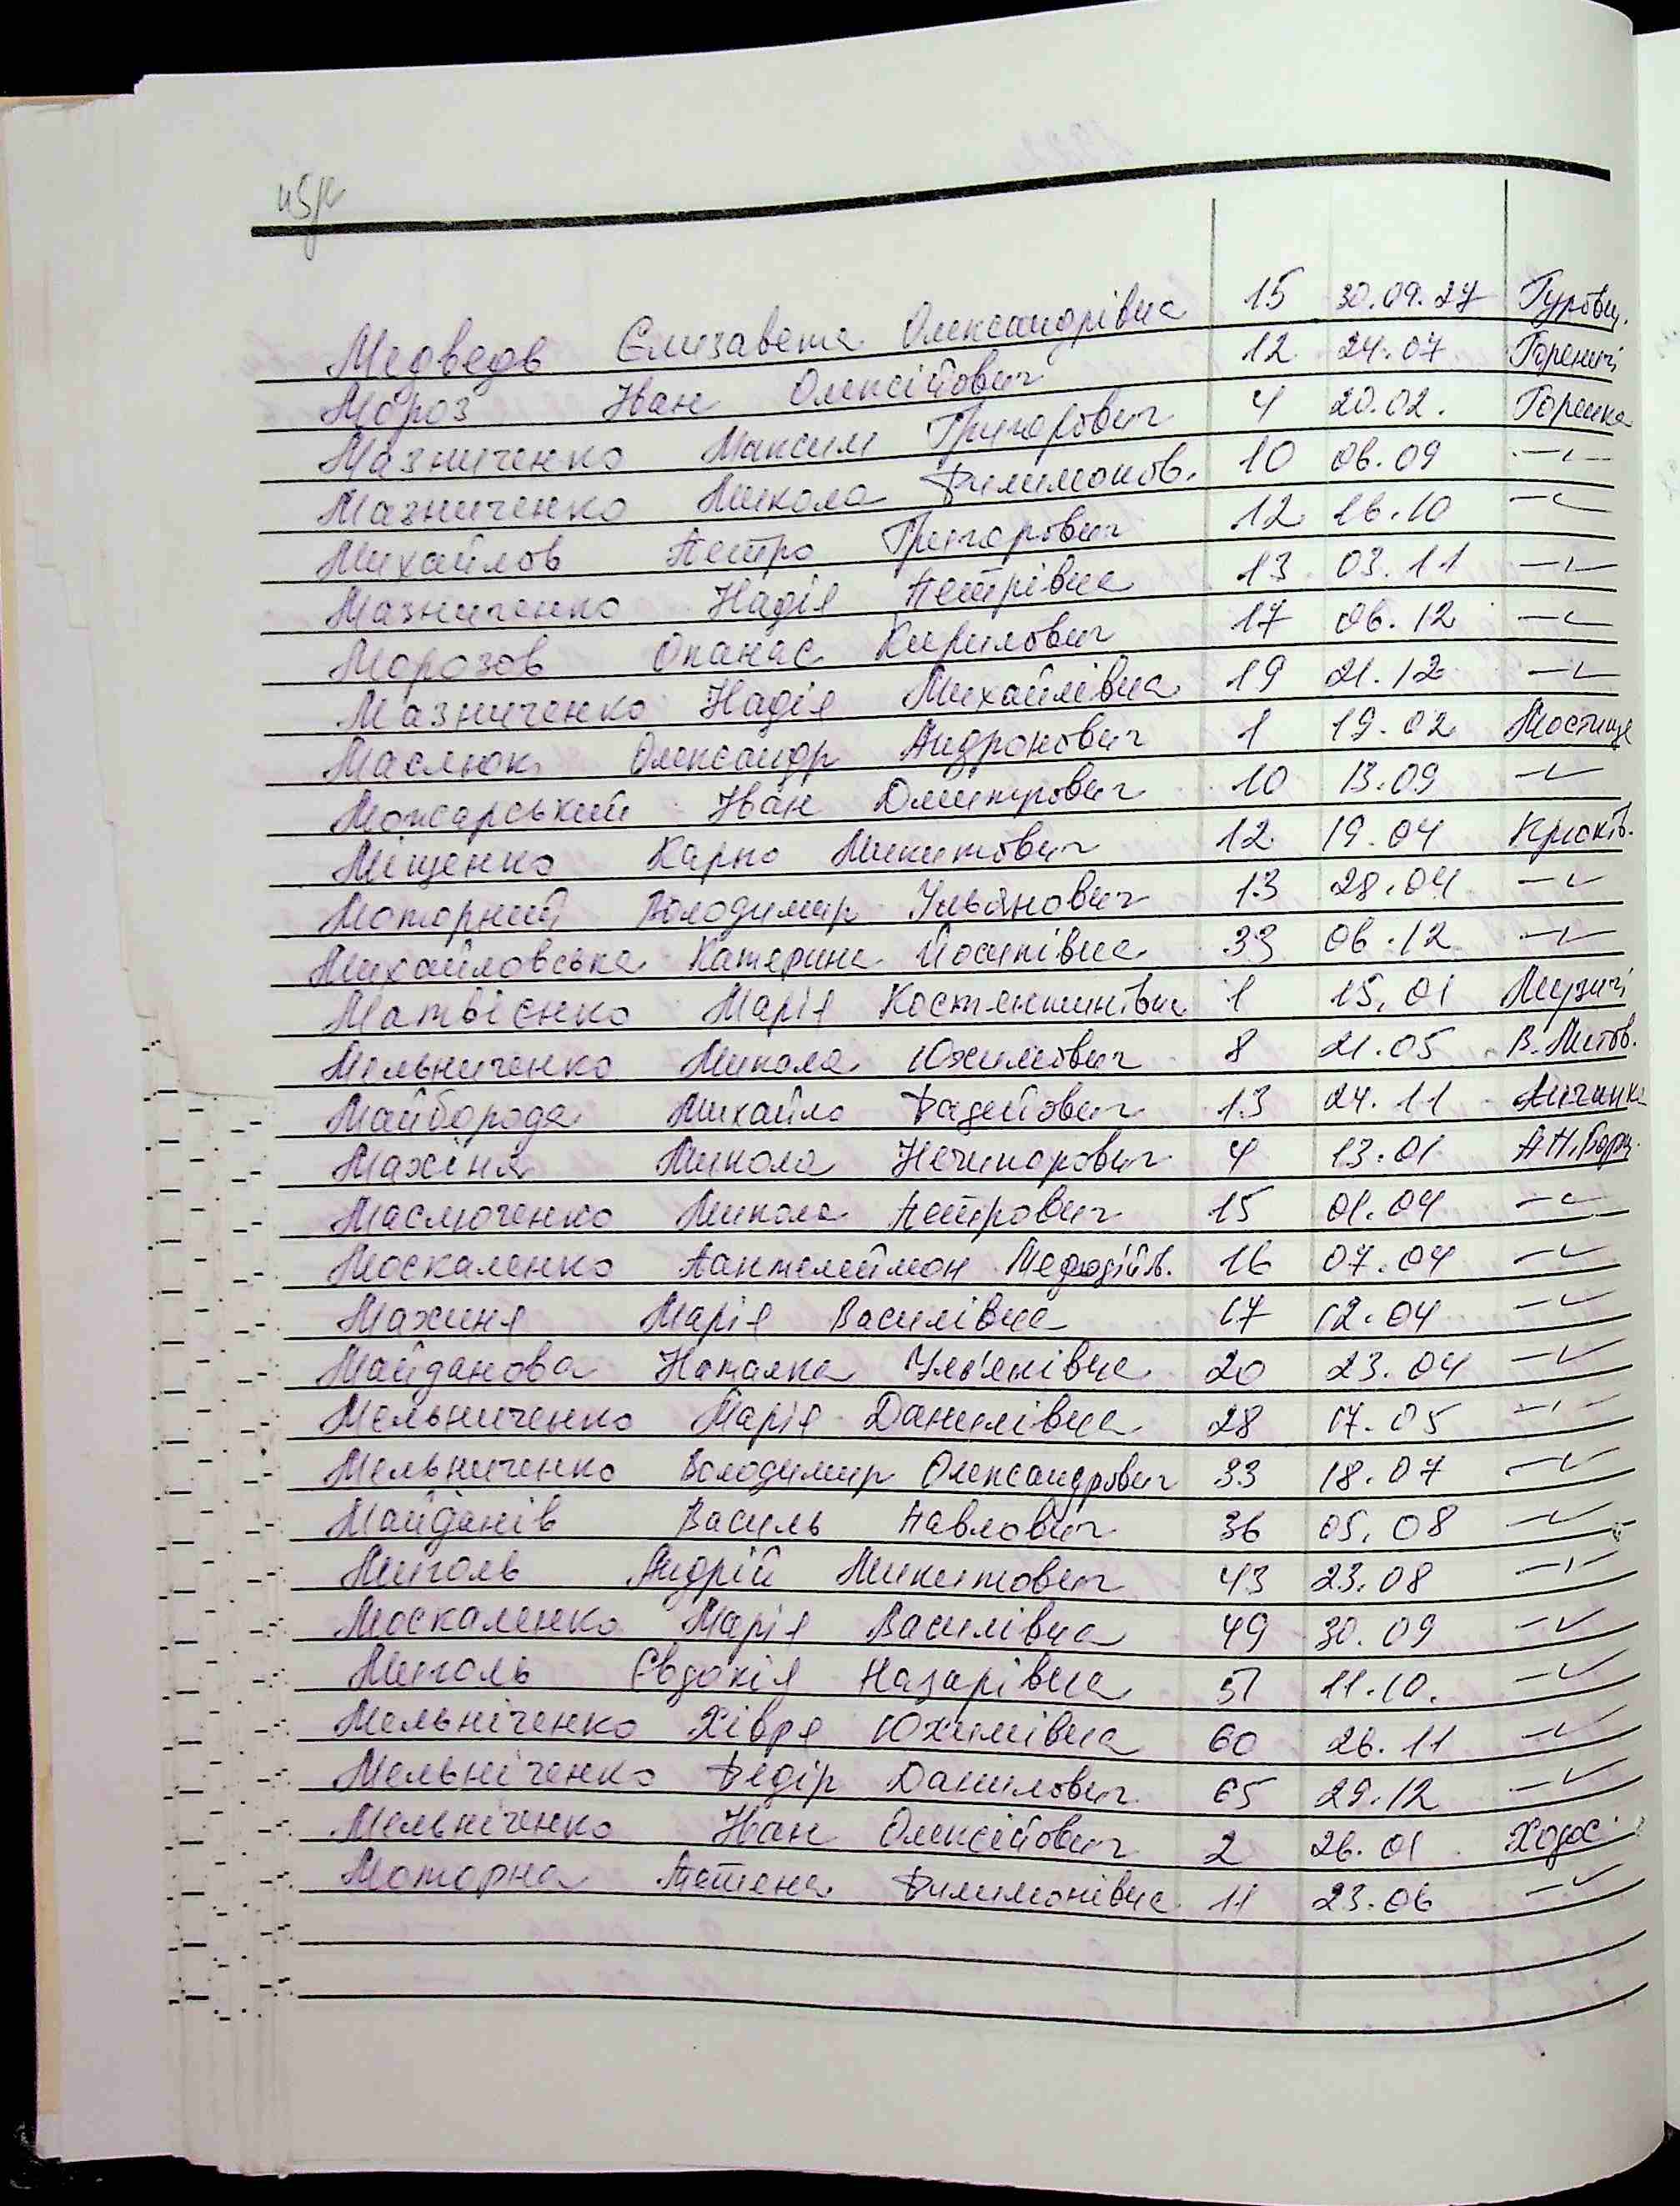 Медведь Єлизавета Олександрівна 15 30.09.27 Гуровщ.
Мороз Іван Олексійович 12 24.07 Гореничі
Мазниченко Максим Григорович 4 20.02. Горенка
Мазниченко Микола Филимонов. 10 06.09 -"-
Михайлов Петро Григорович 12 16.10 -"-
Мазниченко Надія Петрівна 13 03.11 -"-
Морозов Опанас Кирилович 17 06.12 -"-
Мазниченко Надія Михайлівна 19 21.12 -"-
Маслюк Олександр Андронович 1 19.02 Мостище
Можарський Іван Дмитрович 10 13.09 -"-
Міщенко Карпо Микитович 12 19.04 Крюків.
Моторний Володимир Ульянович 13 28.04 -"-
Михайловська Катерина Йосипівна 33 06.12 -"-
Матвієнко Марія Костянтинівна 1 15.01 Музичі
Мельниченко Микола Юхимович 8 21.05 В.Митов.
Майборода Михайло Фадейович 13 24.11 Личанка
Махіня Микола Нечипорович 4 13.01 П.П.Борщ.
Маслюченко Микола Петрович 15 01.04 -"-
Москаленко Пантелеймон Мефодійв. 16 07.04 -"-
Махиня Марія Василівна 17 12.04 -"-
Майданова Наталка Ул'янівна 20 23.04 -"-
Мельниченко Марія Данилівна 28 17.05 -"-
Мельниченко Володимир Олександрович 33 18.07 -"-
Майданів Василь Павлович 36 05.08 -"-
Миголь Андрій Микитович 43 23.08 -"-
Москаленко Марія Василівна 49 30.09 -"-
Миголь Євдокія Назарівна 51 11.10. -"-
Мельніченко Хівря Юхимівна 60 26.11 -"-
Мельніченко Федір Данилович 65 29.12 -"-
Мельніченко Іван Олексійович 2 26.01 Ходос.
Моторна Тетяна Филимонівна 11 23.06 -"-